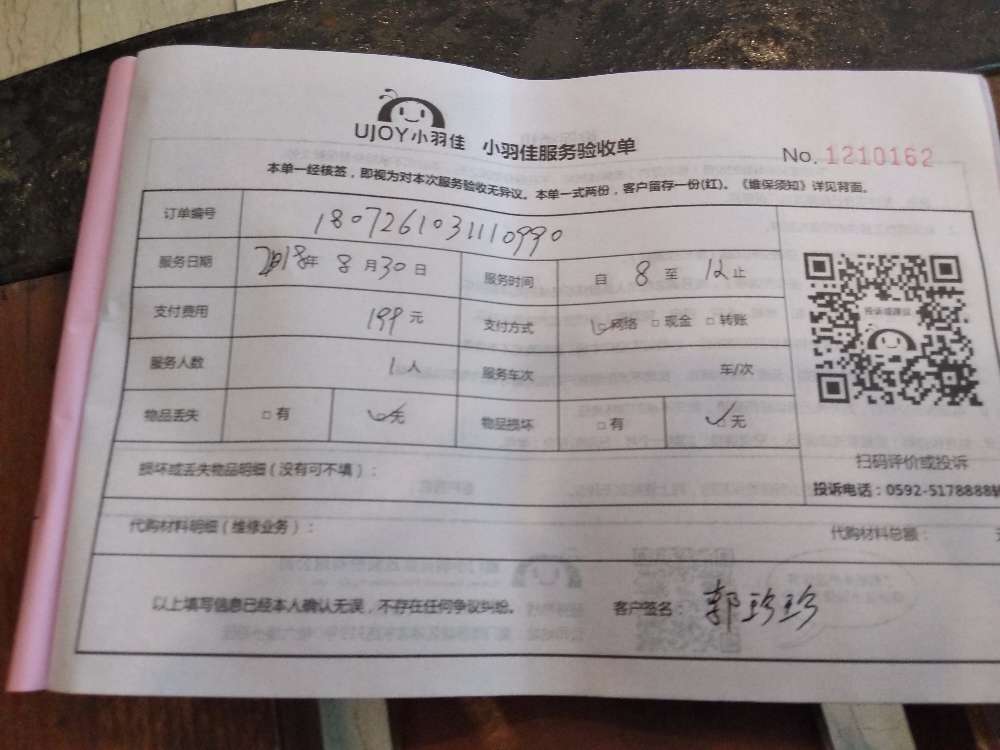 UJOY小羽佳 小羽佳服务验收单
No. 1210162
本单一经核签，即视为对本次服务验收无异议。本单一式两份，客户留存一份(红)。《维保须知》详见背面。
订单编号 180726103110990
服务日期 2018年 8月30日 服务时间 自 8 至 12 止
支付费用 199元 支付方式 网络 □现金 □转账
服务人数 1人 服务车次 车/次
物品丢失 □有 ✓无 物品损坏 □有 ✓无
投诉或建议
扫码评价或投诉
投诉电话：0592-5178888转
损坏或丢失物品明细（没有可不填）：
代购材料明细（维修业务）： 代购材料总额：
以上填写信息已经本人确认无误，不存在任何争议纠纷。 客户签名：郭珍珍